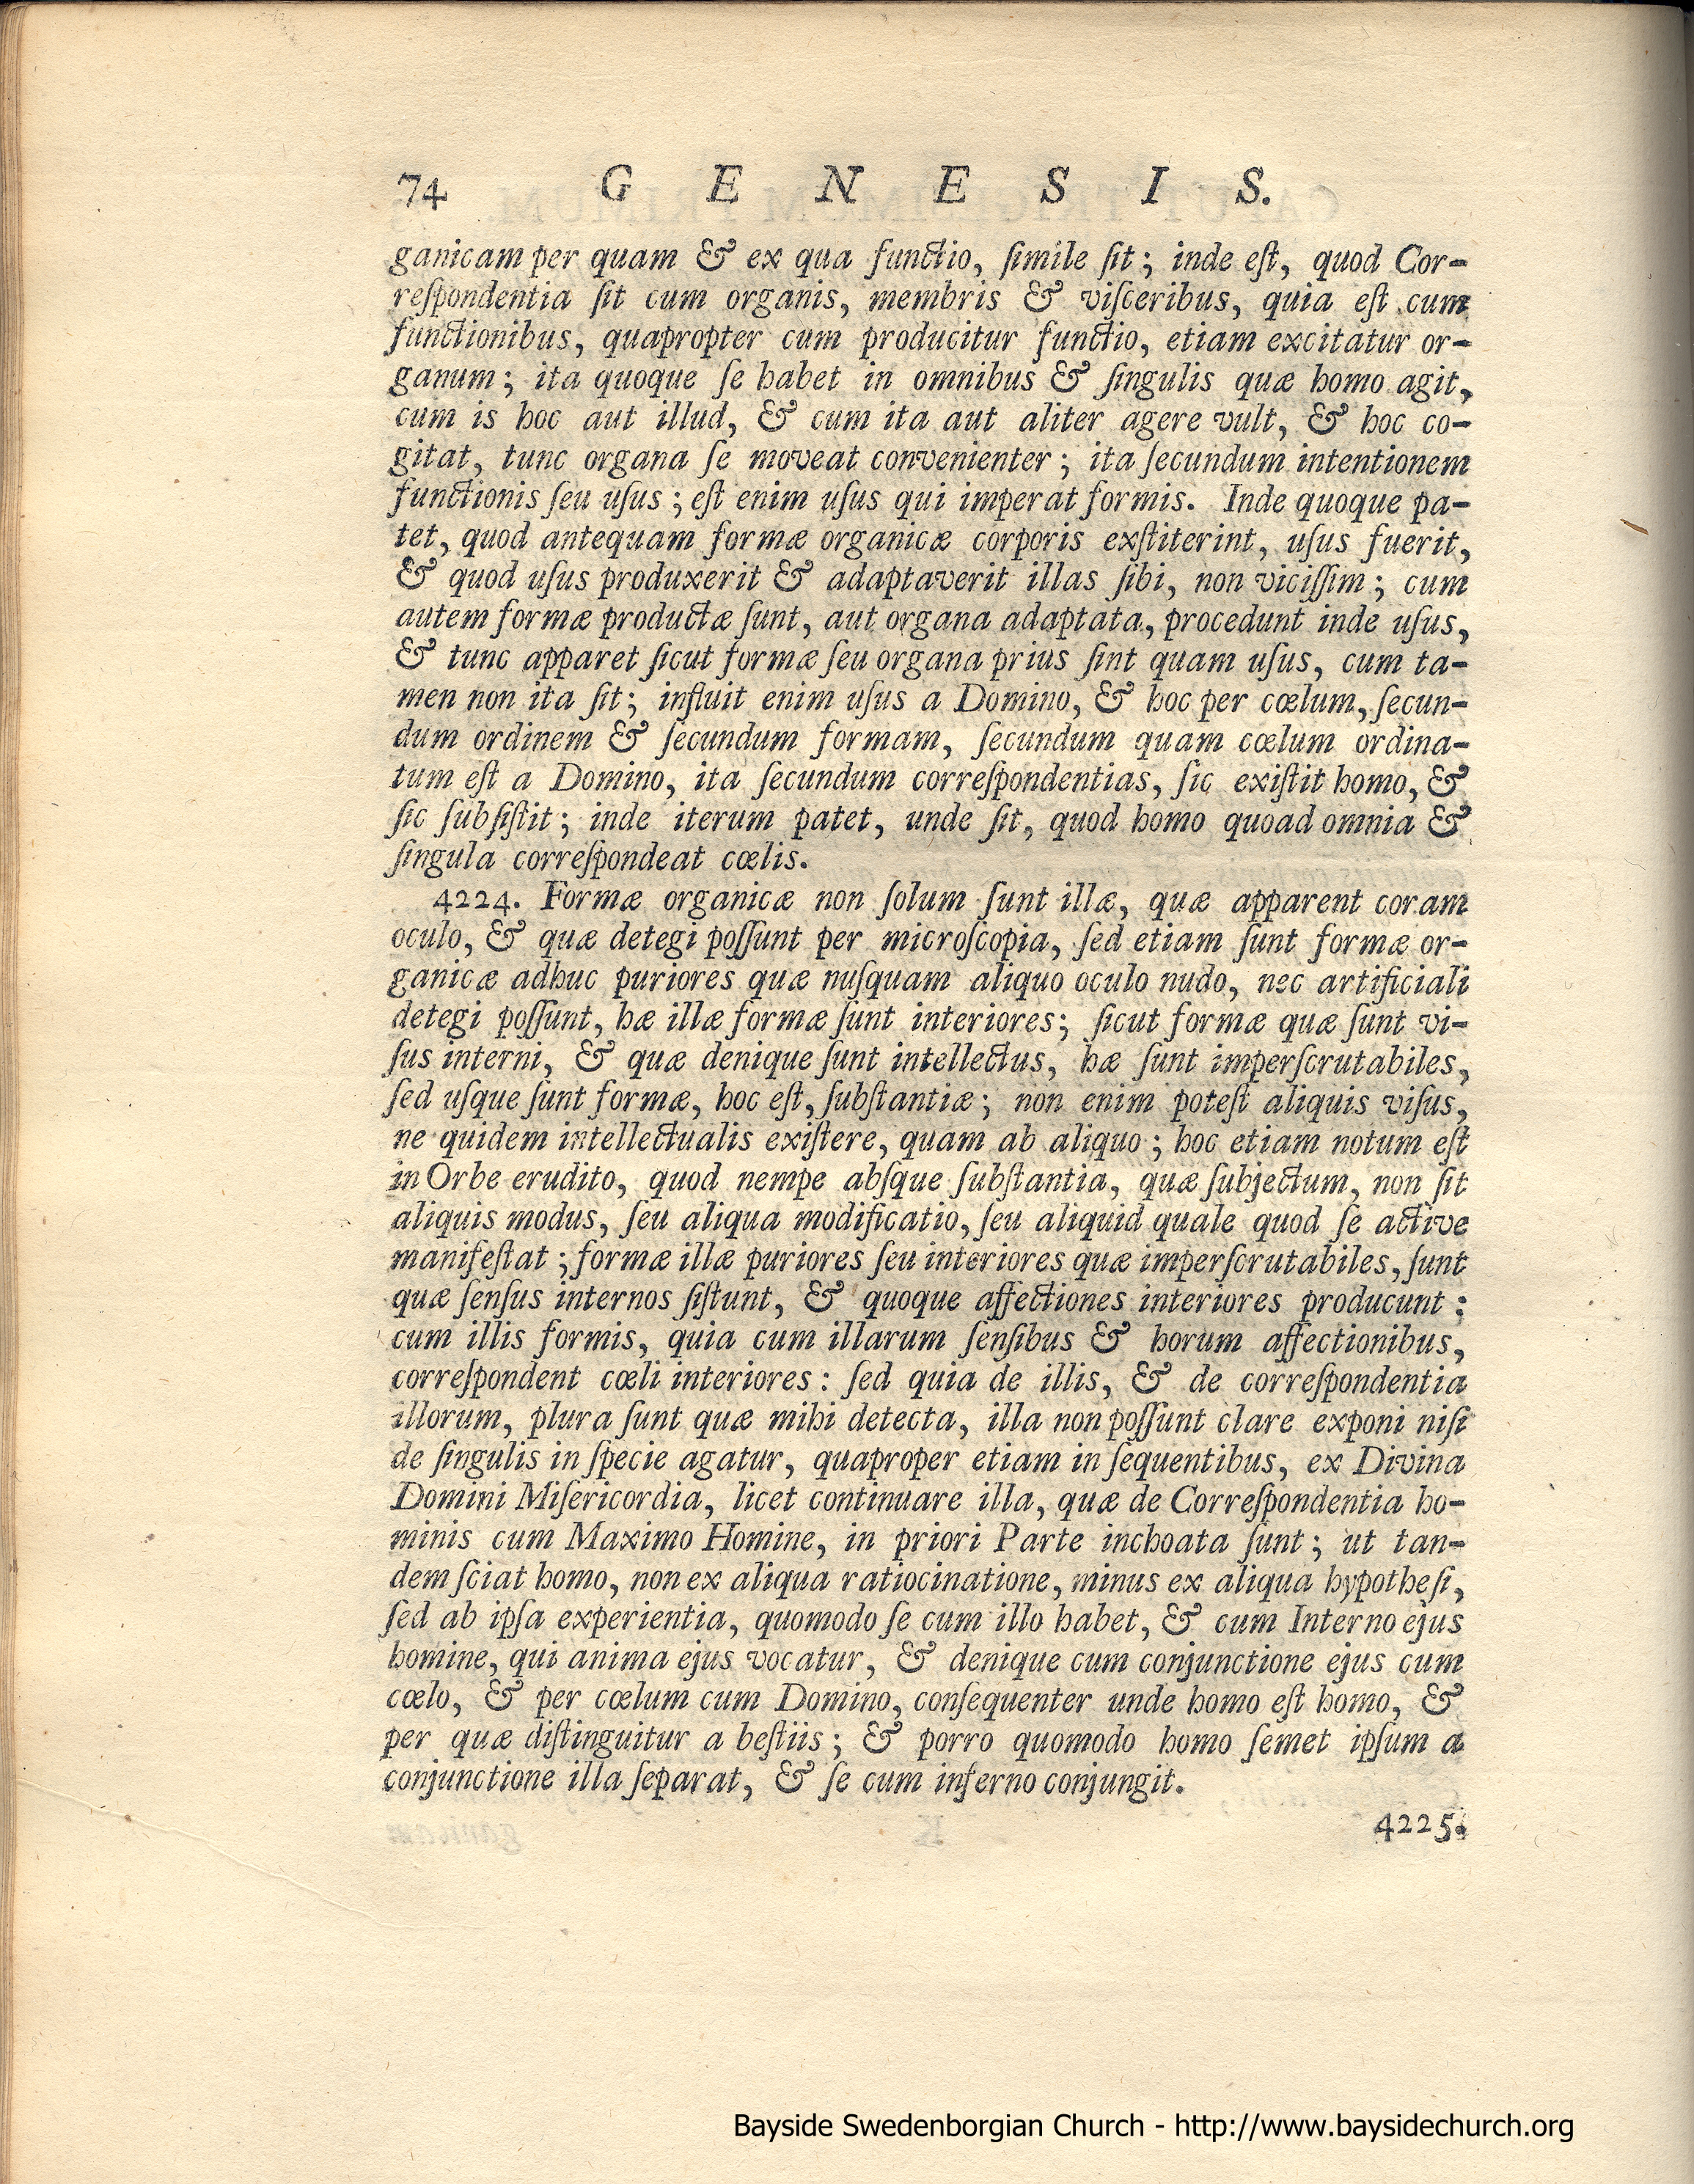 74 G E N E S I S.
ganicam per quam & ex qua functio, ſimile ſit; inde eſt, quod Cor-
reſpondentia ſit cum organis, membris & viſceribus, quia eſt cum
functionibus, quapropter cum producitur functio, etiam excitatur or-
ganum; ita quoque ſe habet in omnibus & ſingulis quæ homo agit,
cum is hoc aut illud, & cum ita aut aliter agere vult, & hoc co-
gitat, tunc organa ſe moveat convenienter; ita ſecundum intentionem
functionis ſeu uſus; eſt enim uſus qui imperat formis. Inde quoque pa-
tet, quod antequam formæ organicæ corporis exſtiterint, uſus fuerit,
& quod uſus produxerit & adaptaverit illas ſibi, non viciſſim; cum
autem formæ productæ ſunt, aut organa adaptata, procedunt inde uſus,
& tunc apparet ſicut formæ ſeu organa prius ſint quam uſus, cum ta-
men non ita ſit; influit enim uſus a Domino, & hoc per cœlum, ſecun-
dum ordinem & ſecundum formam, ſecundum quam cœlum ordina-
tum eſt a Domino, ita ſecundum correſpondentias, ſic exiſtit homo, &
ſic ſubſiſtit; inde iterum patet, unde ſit, quod homo quoad omnia &
ſingula correſpondeat cœlis.
4224. Formæ organicæ non ſolum ſunt illæ, quæ apparent coram
oculo, & quæ detegi poſſunt per microſcopia, ſed etiam ſunt formæ or-
ganicæ adhuc puriores quæ nuſquam aliquo oculo nudo, nec artificiali
detegi poſſunt, hæ illæ formæ ſunt interiores; ſicut formæ quæ ſunt vi-
ſus interni, & quæ denique ſunt intellectus, hæ ſunt imperſcrutabiles,
ſed uſque ſunt formæ, hoc eſt, ſubſtantiæ; non enim poteſt aliquis viſus,
ne quidem intellectualis exiſtere, quam ab aliquo; hoc etiam notum eſt
in Orbe erudito, quod nempe abſque ſubſtantia, quæ ſubjectum, non ſit
aliquis modus, ſeu aliqua modificatio, ſeu aliquid quale quod ſe active
manifeſtat; formæ illæ puriores ſeu interiores quæ imperſcrutabiles, ſunt
quæ ſenſus internos ſiſtunt, & quoque affectiones interiores producunt;
cum illis formis, quia cum illarum ſenſibus & horum affectionibus,
correſpondent cœli interiores: ſed quia de illis, & de correſpondentia
illorum, plura ſunt quæ mihi detecta, illa non poſſunt clare exponi niſi
de ſingulis in ſpecie agatur, quaproper etiam in ſequentibus, ex Divina
Domini Miſericordia, licet continuare illa, quæ de Correſpondentia ho-
minis cum Maximo Homine, in priori Parte inchoata ſunt; ut tan-
dem ſciat homo, non ex aliqua ratiocinatione, minus ex aliqua hypotheſi,
ſed ab ipſa experientia, quomodo ſe cum illo habet, & cum Interno ejus
homine, qui anima ejus vocatur, & denique cum conjunctione ejus cum
cœlo, & per cœlum cum Domino, conſequenter unde homo eſt homo, &
per quæ diſtinguitur a beſtiis; & porro quomodo homo ſemet ipſum a
conjunctione illa ſeparat, & ſe cum inferno conjungit.
4225.
Bayside Swedenborgian Church - http://www.baysidechurch.org